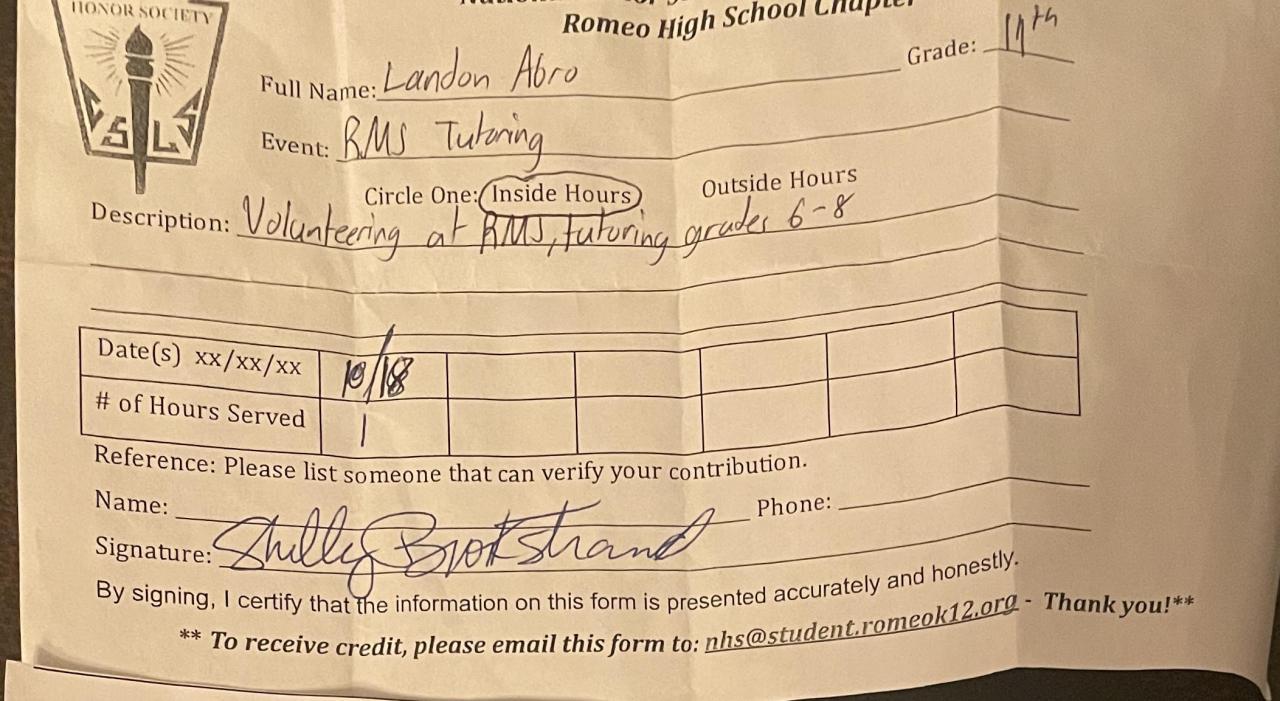 HONOR SOCIETY
Romeo High School Chapter
Full Name: Landon Abro Grade: 11th
Event: RMS Tutoring
Circle One: Inside Hours Outside Hours
Description: Volunteering at RMS, tutoring grades 6-8
Date(s) xx/xx/xx 10/18
# of Hours Served 1
Reference: Please list someone that can verify your contribution.
Name: Phone:
Signature: Shelly Brookstrand
By signing, I certify that the information on this form is presented accurately and honestly.
** To receive credit, please email this form to: nhs@student.romeok12.org - Thank you!**